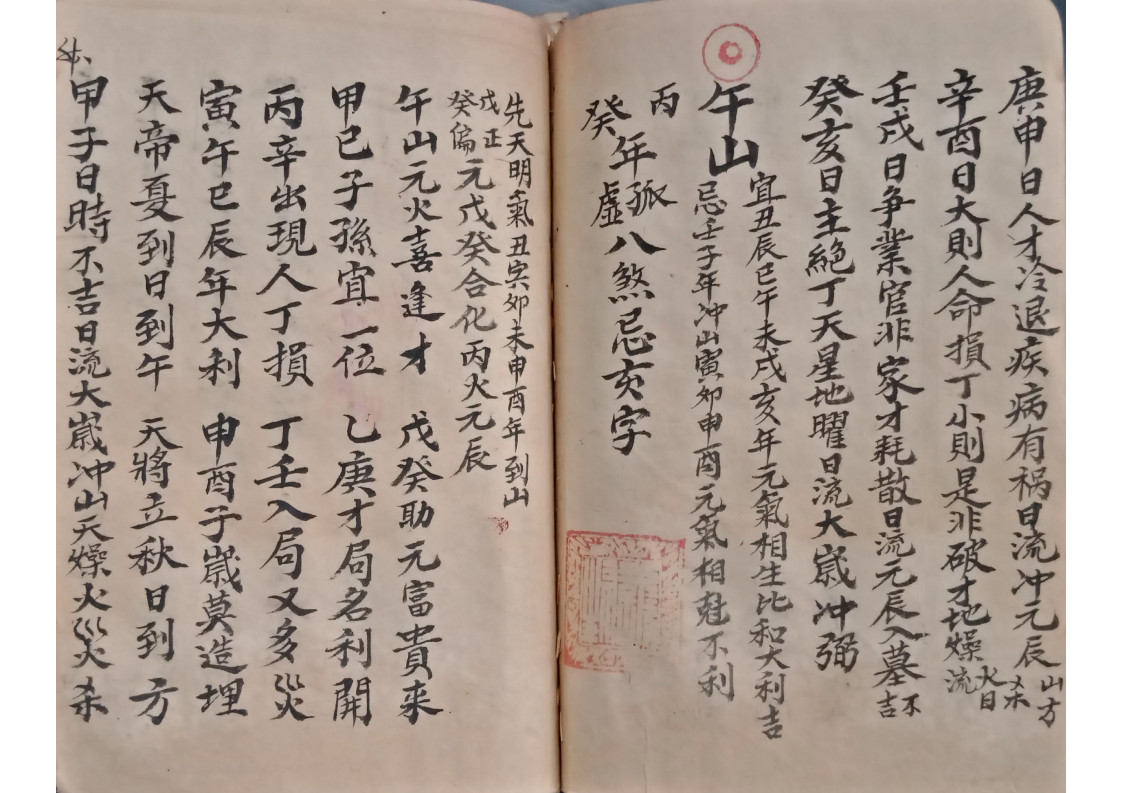 庚申日人才冷退疾病有祸日流冲元辰山方
辛酉日大則人命損丁小則是非破才地燥火日流
壬戌日争業官非家才耗散日流元辰入墓不吉
癸亥日主絕丁天星地曜日流大歲冲弼
午山
宜丑辰巳午未戌亥年元氣相生比和大利吉
忌壬子年冲山寅卯申酉元氣相尅不利
丙癸年孤虛八煞忌亥字
先天明氣丑寅卯未申酉年到山
戊正癸偏元戊癸合化丙火元辰
午山元火喜逢才 戊癸助元富貴来
甲己子孫宜一位 乙庚才局名利開
丙辛出現人丁損 丁壬入局又多災
寅午巳辰年大利 申酉子歲莫造埋
天帝夏到日到午 天將立秋日到方
甲子日時不吉日流大歲冲山天燥火災杀